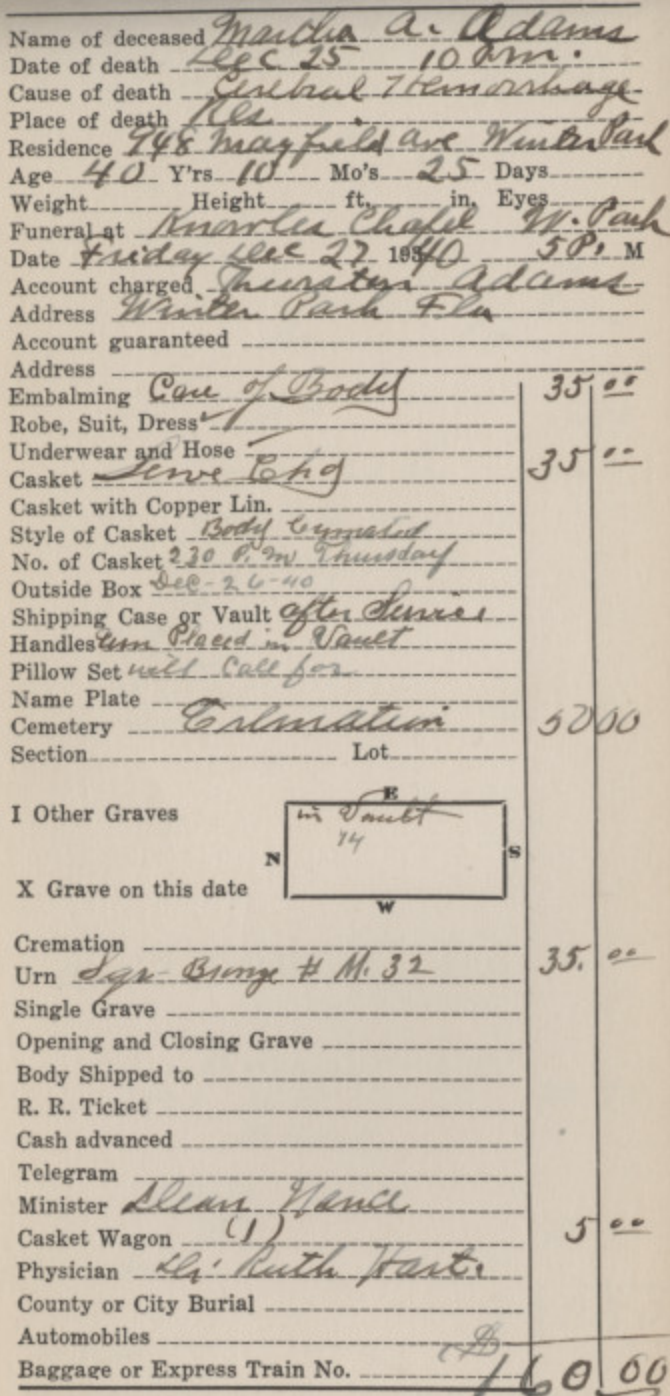 Name of deceased Martha A. Adams
Date of death Dec 25 10 P.m.
Cause of death Cerebral Hemorrhage
Place of death Res
Residence 948 Mayfield Ave Winter Park
Age 40 Y'rs 10 Mo's 25 Days
Weight Height ft. in. Eyes
Funeral at Knowles Chapel W. Park
Date Friday Dec 27 1940 5 P. M
Account charged Thurston Adams
Address Winter Park Fla
Account guaranteed
Address
Embalming Care of Body 35 00
Robe, Suit, Dress
Underwear and Hose
Casket Serve Chg 35 00
Casket with Copper Lin.
Style of Casket Body Cremated
No. of Casket 230 P.m Thursday
Outside Box Dec-26-40
Shipping Case or Vault after Service
Handles Urn Placed in Vault
Pillow Set will call for
Name Plate
Cemetery Cremation 50 00
Section Lot
E
I Other Graves in Vault
14
N S
X Grave on this date
W
Cremation
Urn Sqr Bronze # M. 32 35. 00
Single Grave
Opening and Closing Grave
Body Shipped to
R. R. Ticket
Cash advanced
Telegram
Minister Dean Nance
Casket Wagon (1) 5 00
Physician Dr. Ruth Hart.
County or City Burial
Automobiles
Baggage or Express Train No. 160 00